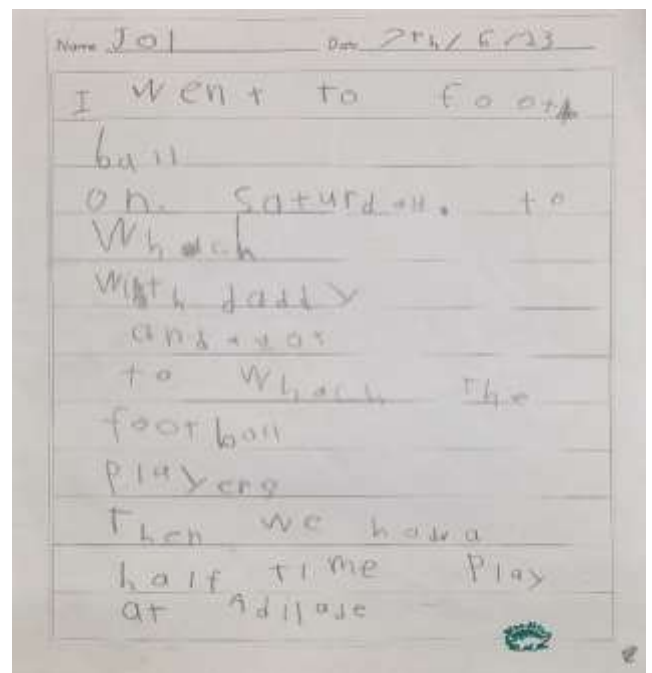 Name Jol Date 7th / 6 / 23
I went to foot
ball
on. Saturday. to
Whach
with daddy
to Whach The
football
Playeng
Then we hava
half time Play
at Adilade